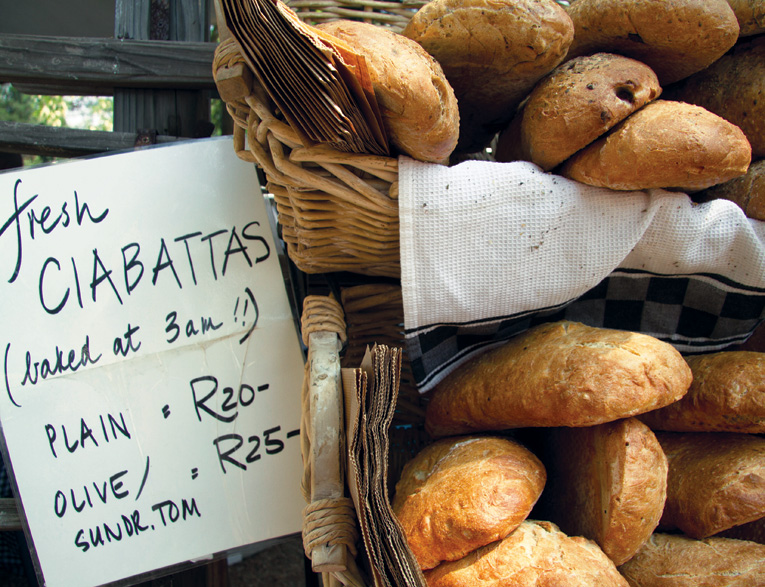 fresh
CIABATTAS
(baked at 3am !!)
PLAIN = R20-
OLIVE/ = R25-
SUNDR.TOM